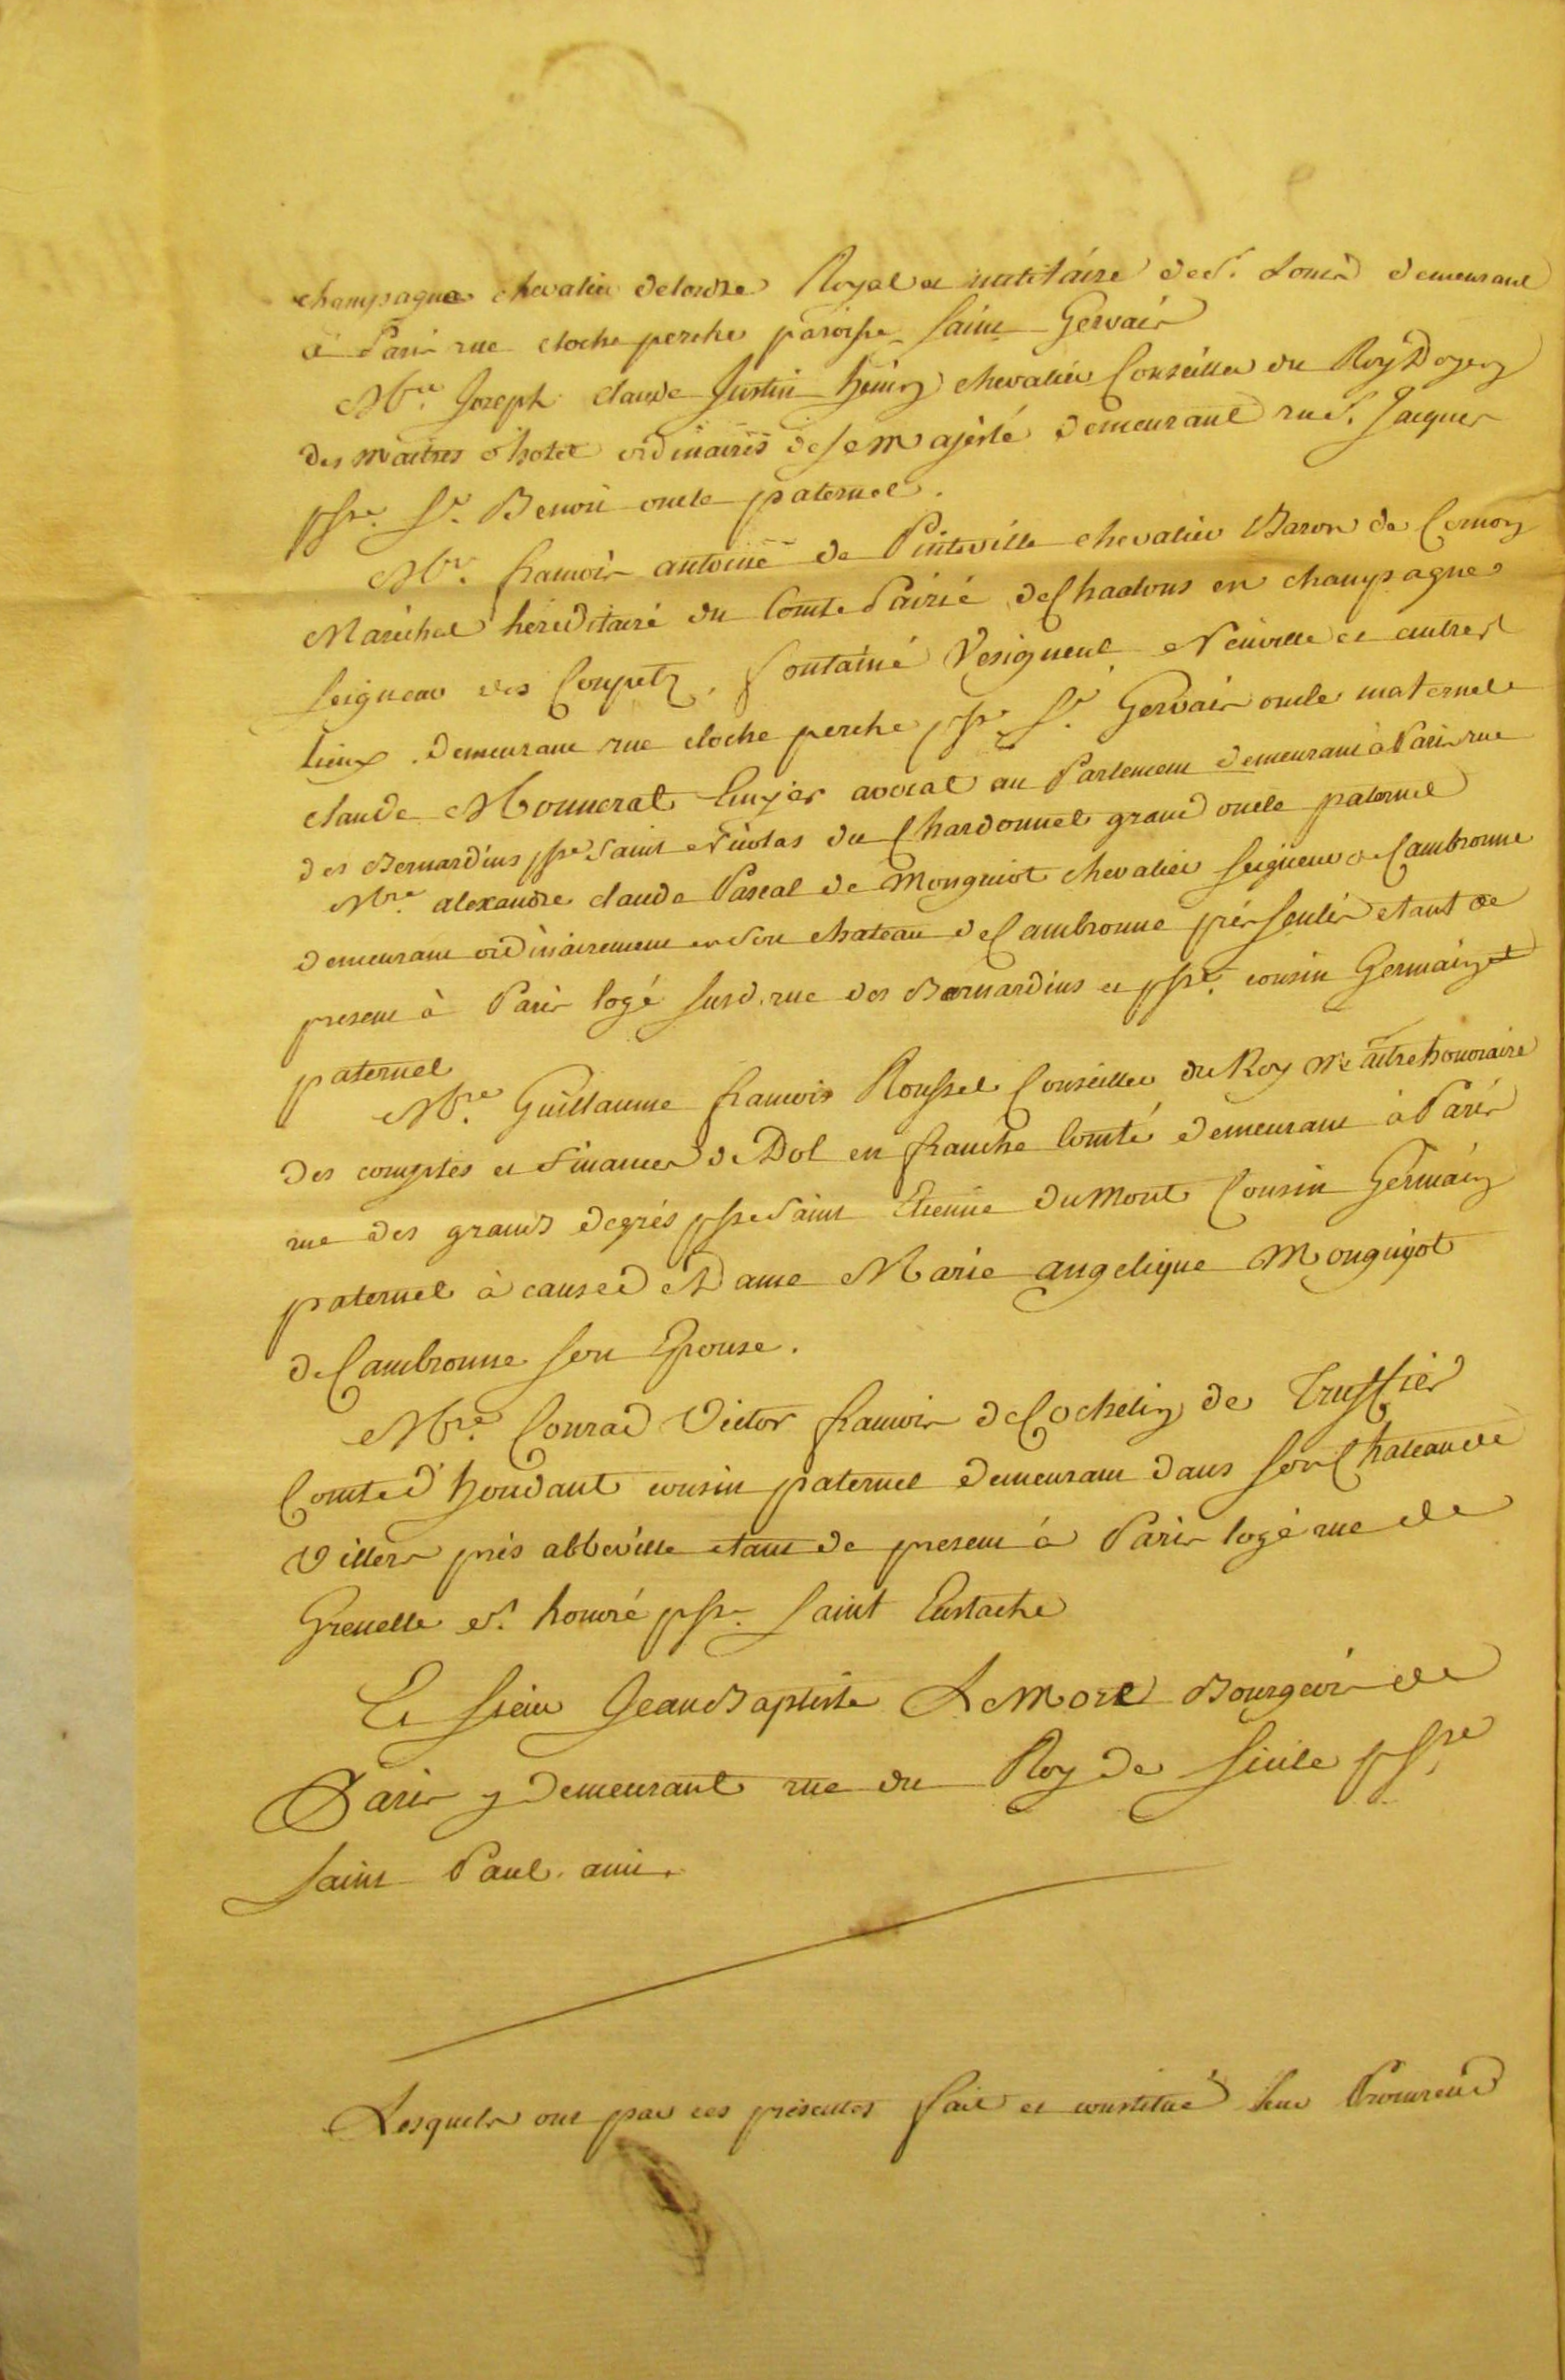 champagne chevalier delordre Royal et militaire de St. Louis demeurant
à Paris rue cloche perche paroisse Saint Gervais
Mre. Joseph claude Justin henry chevalier Conseiller du Roy Doyen
des maitres d'hotel ordinaires de sa majesté demeurant rue St. Jacques
psse. St. Benoit oncle paternel.
Mre. francois antoine de Pinteville chevalier Baron de Cernon
Maréchal héréditaire du Comté Pairie de Chaalons en champagne
seigneur des Coupetz, fontaine Vesigneul Neuville et autres
lieux demeurant rue cloche perche psse St. Gervais oncle maternel
claude Monnerat Ecuyer avocat au Parlement demeurant à Paris rue
des Bernardins psse Saint Nicolas du Chardonnet grand oncle paternel
Mre. alexandre claude Pascal de Monguiot chevalier seigneur de Cambronne
demeurant ordinairement en son chateau de Cambronne près senlis etant de
present à Paris logé susd. rue des Bernardins et psse. cousin Germain
paternel
Mre. Guillaume francois Roussel Conseiller du Roy Maitre honoraire
des comptes et finances de Dol en franche Comté demeurant à Paris
rue des grands degrés psse Saint Etienne du mont Cousin Germain
paternel à cause de Dame Marie angelique Monguyot
de Cambronne son Epouse.
Mre. Conrad Victor francois de Cochelin de Truffier
Comte d'houdant cousin paternel demeurant dans son Chateau de
Villers près abbeville etant de present à Paris logé rue de
Grenelle St. honoré psse. Saint Eustache
Et sieur Jean Baptiste Le More Bourgeois de
Paris y demeurant rue du Roy de Sicile psse
Saint Paul. ami.
Lesquels ont par ces présentes fait et constitué leur Procureur